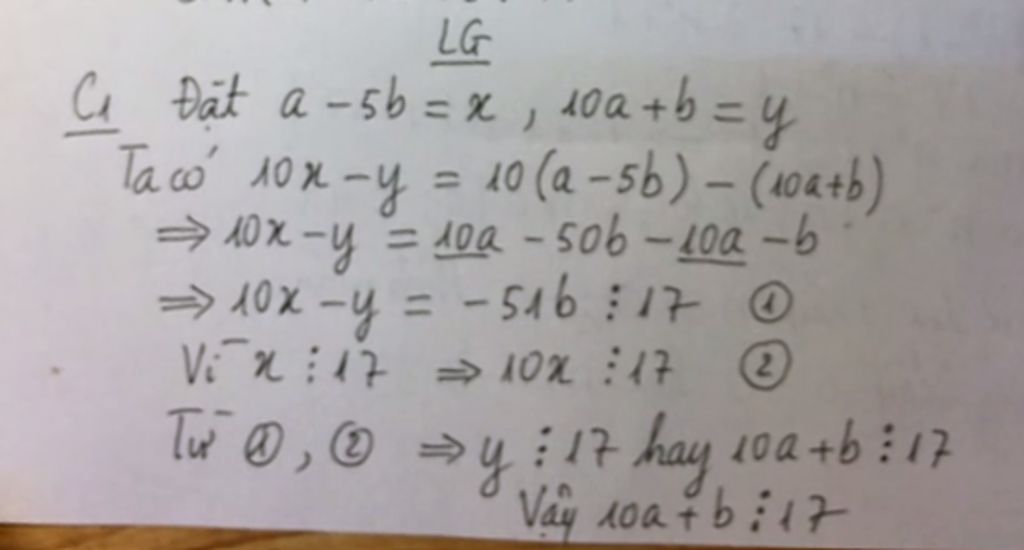 LG
C1 Đặt a - 5b = x , 10a + b = y
Ta có 10x - y = 10(a - 5b) - (10a+b)
⇒ 10x - y = 10a - 50b - 10a - b
⇒ 10x - y = -51b ⋮ 17 ①
Vì x ⋮ 17 ⇒ 10x ⋮ 17 ②
Từ ①, ② ⇒ y ⋮ 17 hay 10a + b ⋮ 17
Vậy 10a + b ⋮ 17